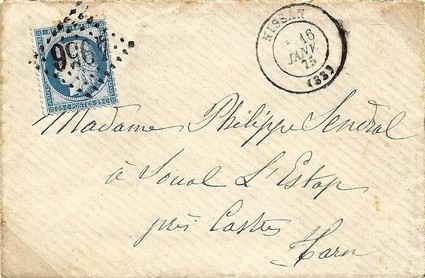 NISSAN
16
JANV.
75
(33)
Madame Philippe Sendral
à Soual L'Estap
près Castres
Tarn